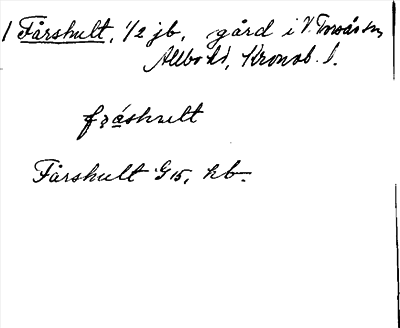 1 Fårshult, 1/2 jb, gård i V. Torsås sn,
Allbo hd, Kronob. l.
fráshult
Fårshult G 15, kb.